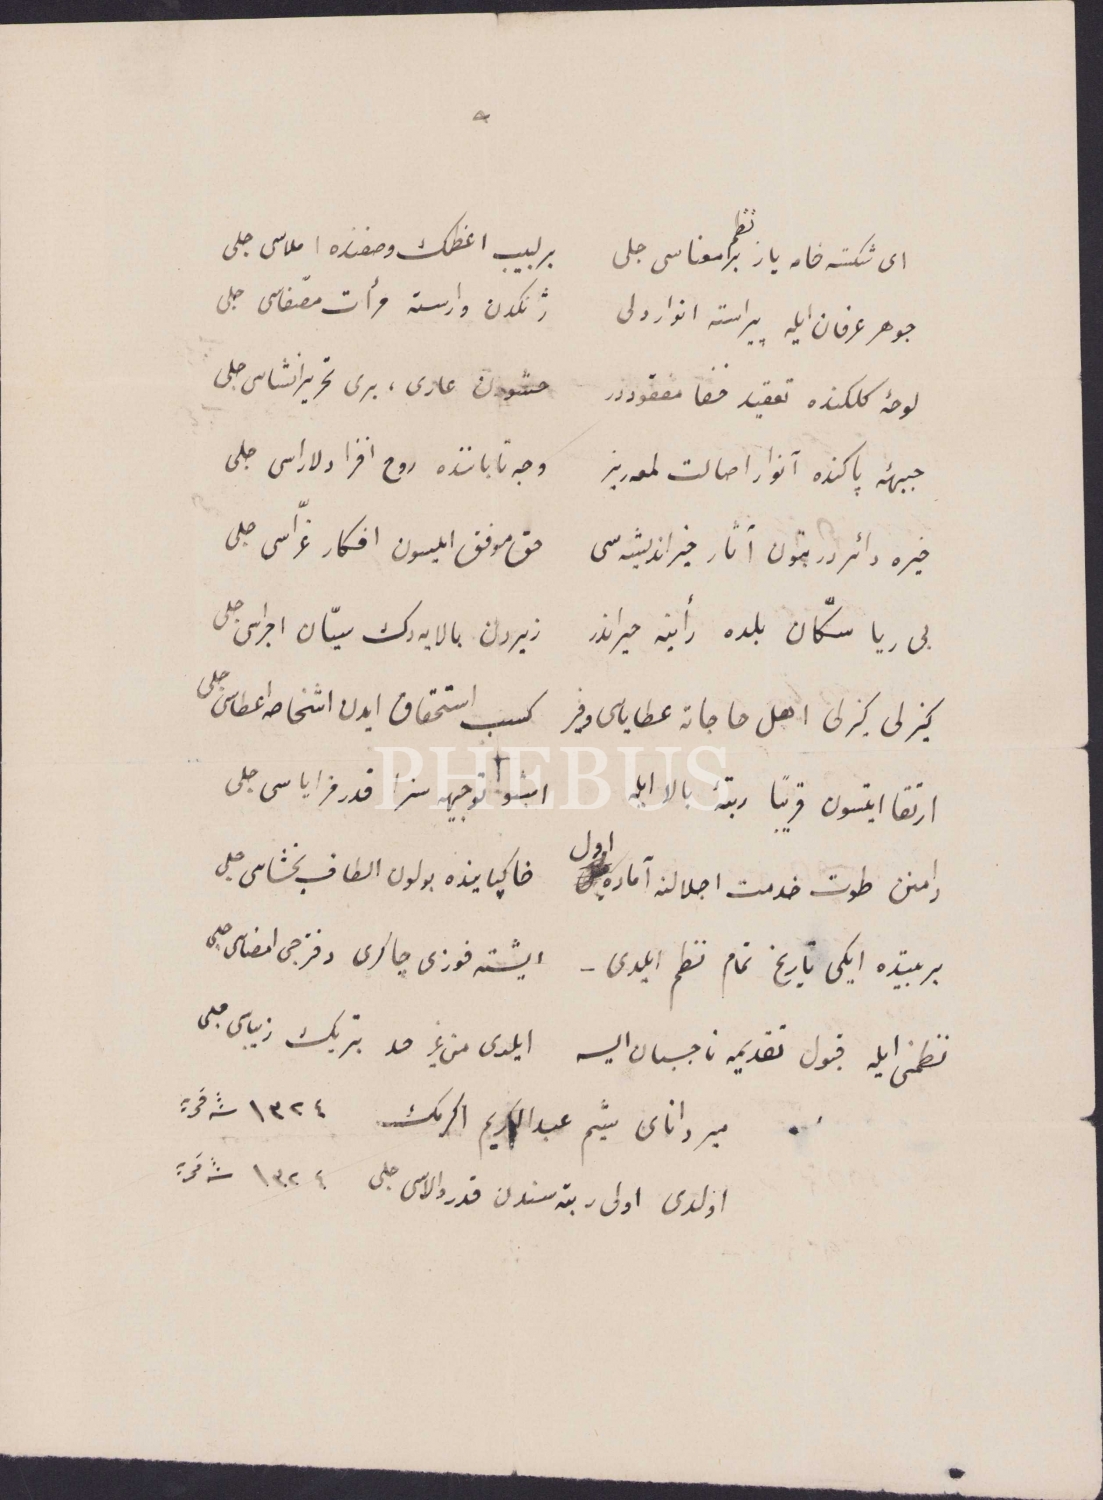 ای شکسته خامه یاز بر نظم معناسی جلی بر لبیب اعظمك وصفنده املاسی جلی
جوهر عرفان ایله پیراسته انوار دلی ژنكدن وارسته مرأت مصفاسی جلی
لوحۀ كلكنده تعقید خفا مفقوددر حشودن عاری، بری تحریر انشاسی جلی
جبهۀ پاكنده آنوار اصالت لمعه ریز وجه تاباننده روح افزا دلاراسی جلی
خیره دائر در بتون آثار خیر اندیشه سی حق موفق ایلسون افكار غرّاسی جلی
بی ریا سكّان بلده رأینه حیراندر زیردن بالایه دك سیّان اجراسی جلی
كیزلی كیزلی اهل حاجاته عطایاسی وفیر كسب استحقاق ایدن اشخاصه اعطاسی جلی
ارتقا ایتسون قریبًا رتبۀ بالا ایله اشبو توجیهه سزا قدر مزایاسی جلی
دامنن طوت خدمت اجلالنه آماده اول خاكپاینده بولون الطاف بخشاسی جلی
بر بیتده ایكی تاریخ تمام نظم ایلدی - ایشته فوزی چاكری دفترجی امضاسی جلی
نظمنی ایله قبول تقدیمه ناچسبان ایسه ایلدی من غیر حد تبریك زیباسی جلی
میر دانای شیم عبدالكریم اكرمك ١٣٢٤ سنه قمریه
اولدی اولی رتبه سندن قدر والاسی جلی ١٣٢٤ سنه قمریه
PHEBUS